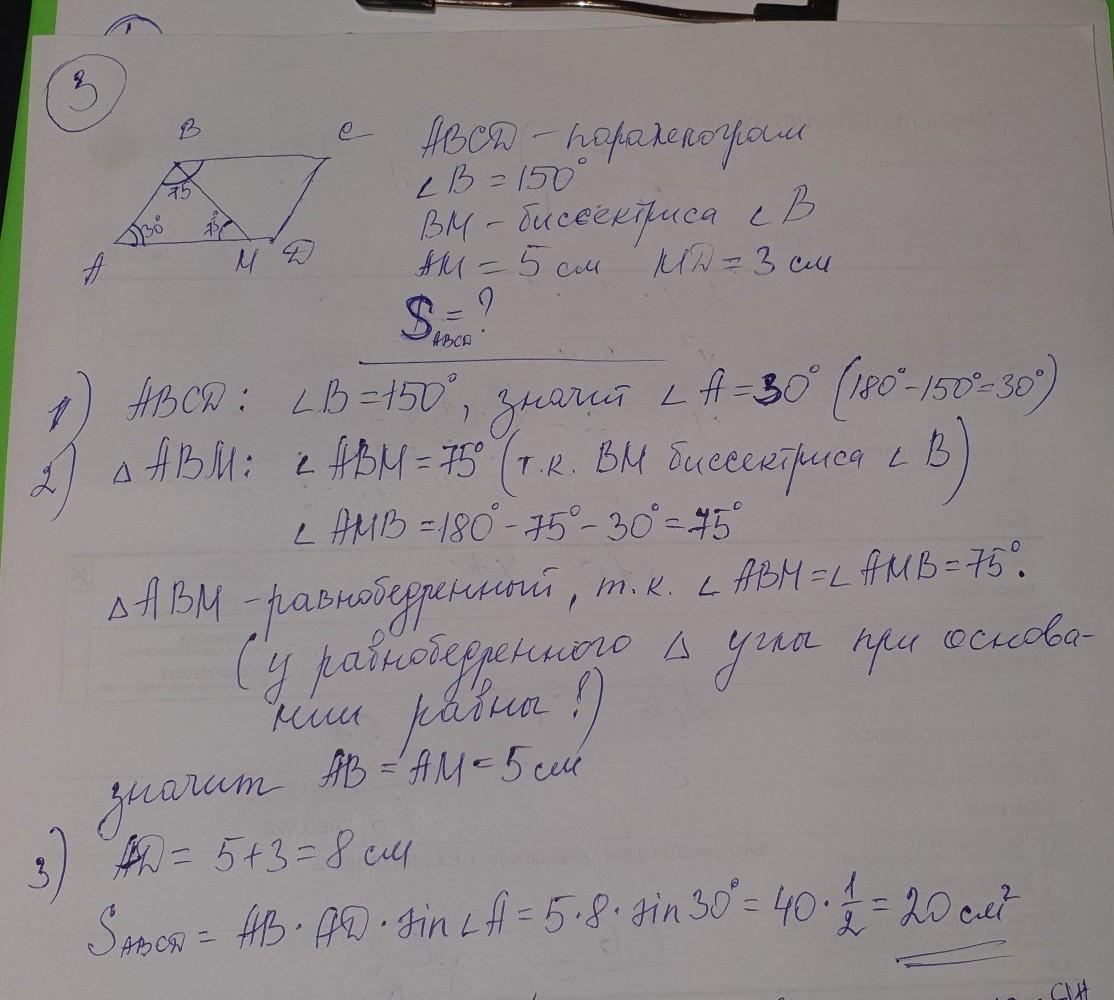 3
B
C
75
30°
75°
A
M
D
ABCD - параллелограм
∠B = 150°
BM - биссектриса ∠B
AM = 5 см MD = 3 см
S ABCD = ?
1) ABCD: ∠B = 150°, значит ∠A = 30° (180° - 150° = 30°)
2) △ABM: ∠ABM = 75° (т.к. BM биссектриса ∠B)
∠AMB = 180° - 75° - 30° = 75°
△ABM - равнобедренный, т.к. ∠ABM = ∠AMB = 75°.
(у равнобедренного △ углы при основа-
нии равны!)
значит AB = AM = 5 см
3) AD = 5 + 3 = 8 см
S ABCD = AB · AD · sin∠A = 5 · 8 · sin 30° = 40 · 1/2 = 20 см²